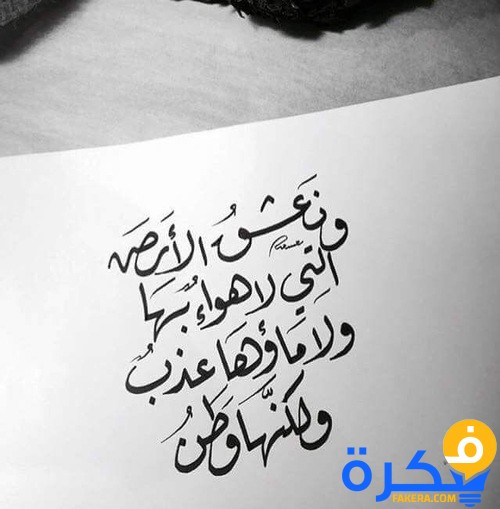 ونَعشقُ الأَرضَ
التِي لا هواءٌ بهَا
ولا مَاؤهَا عذبٌ
ولكنَّها وَطَنُ
فكرة
FAKERA.COM